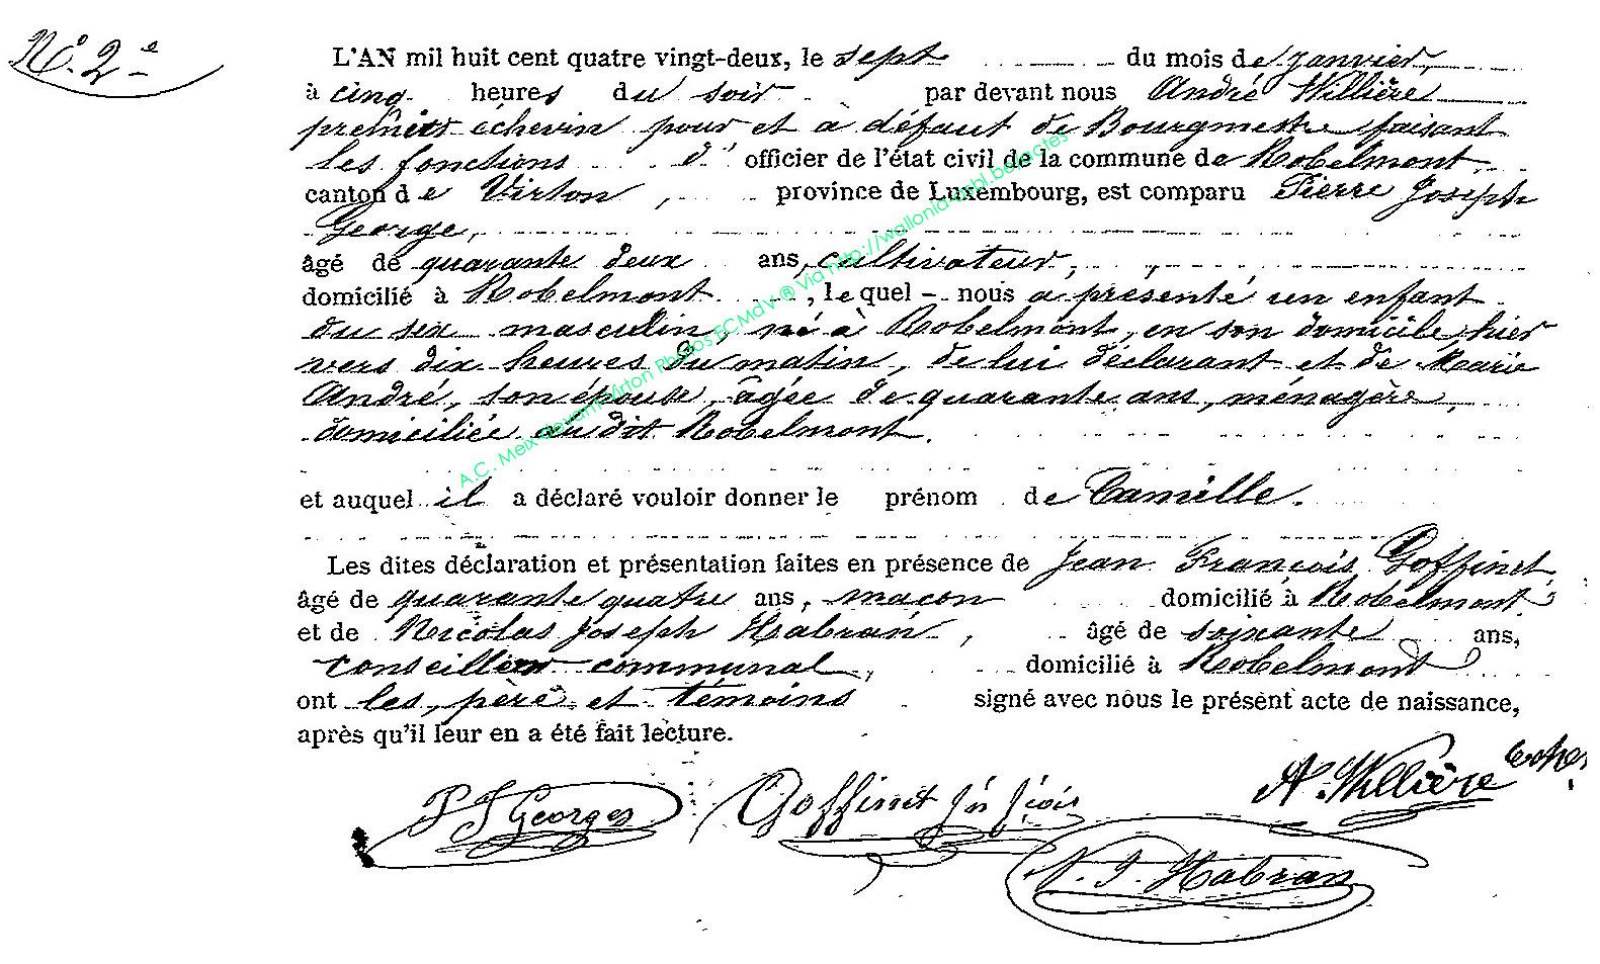 N° 2e
L'AN mil huit cent quatre vingt-deux, le sept du mois de janvier,
à cinq heures du soir par devant nous André Willière
premier échevin pour et à défaut de Bourgmestre faisant
les fonctions d' officier de l'état civil de la commune de Robelmont,
canton de Virton, province de Luxembourg, est comparu Pierre Joseph
George,
âgé de quarante deux ans, cultivateur,
domicilié à Robelmont, lequel nous a présenté un enfant
du sex masculin, né à Robelmont, en son domicile, hier
vers dix heures du matin, de lui déclarant et de Marie
André, son épouse, âgée de quarante ans, ménagère,
domiciliée au dit Robelmont.
et auquel il a déclaré vouloir donner le prénom de Camille.
Les dites déclaration et présentation faites en présence de Jean François Goffinet,
âgé de quarante quatre ans, maçon domicilié à Robelmont
et de Nicolas Joseph Habran, âgé de soixante ans,
conseiller communal, domicilié à Robelmont
ont les, père et témoins signé avec nous le présent acte de naissance,
après qu'il leur en a été fait lecture.
P J Georges Goffinet Jn A. Willière
N. J. Habran
A.C. Meix-devant-Virton Photos ECMdV ® Via http://wallonia-asbl.be/actes